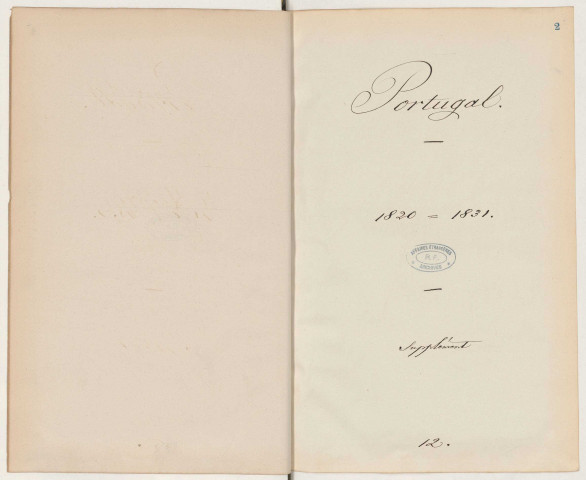 2
Portugal.
1820 = 1831.
AFFAIRES ÉTRANGÈRES
R.F.
ARCHIVES
Supplément
12.